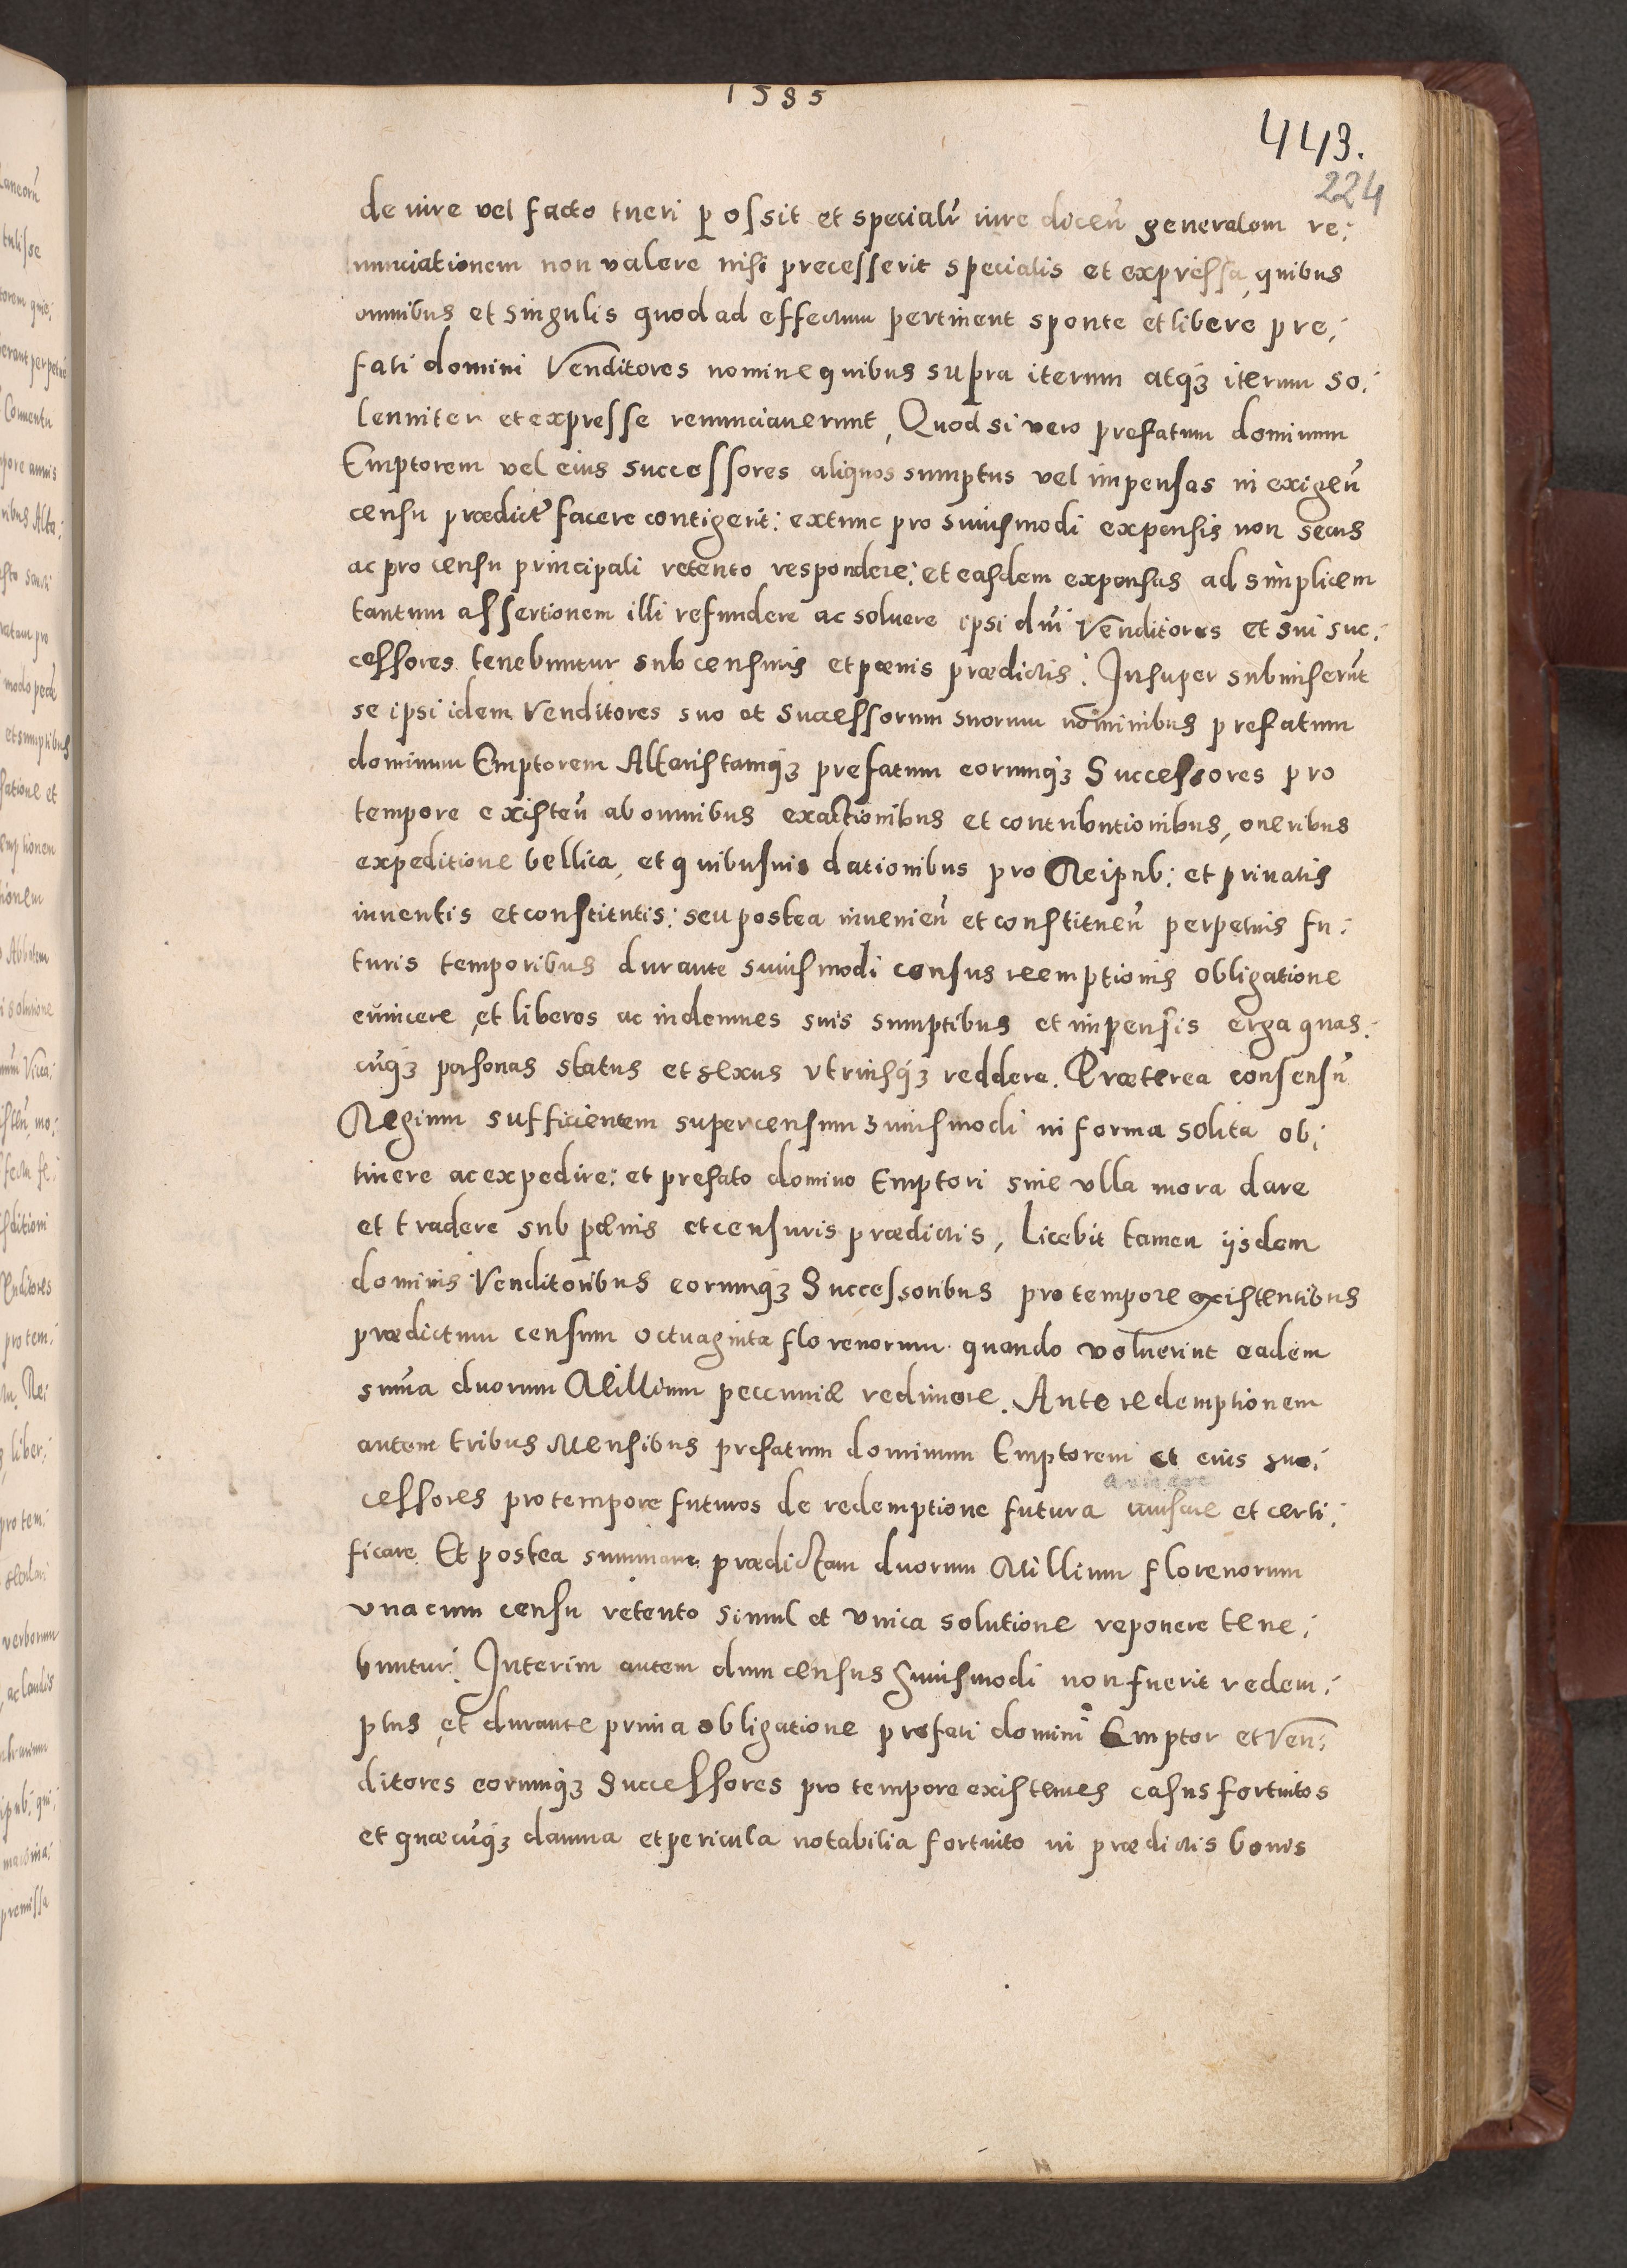 1585
443.
224
de iure vel facto tueri possit et specialr̃ iure diceñ generalem re¡
nunciationem non valere nisi precesserit specialis et expressa, quibus
omnibus et singulis quod ad effectum pertinent sponte et libere pre¡
fati domini Venditores nomine quibus supra iterum atqȝ iterum so¡
lenniter et expresse renunciauerunt, Quod si vero prefatum dominum
Emptorem vel eius successores aliquos sumptus vel impensas in exigeñ
censu prædict̃ facere contigerit: extunc pro huiusmodi expensis non secus
ac pro censu principali retento respondere: et easdem expensas ad simplicem
tantum assertionem illi refundere ac soluere ipsi dñi Venditores et sui suc¡
cessores tenebuntur sub censuris et pœnis prædictis: Insuper submiserũt
se ipsi idem Venditores suo et successorum suorum nominibus prefatum
dominum Emptorem Altaristamqȝ prefatum eorumqȝ Successores pro
tempore existeñ ab omnibus exactionibus et contributionibus, oneribus
expeditione bellica, et quibusuis dationibus pro Reipub: et priuatis
inuentis et constitutis: seu postea inuenieñ et constitueñ perpetuis fu¡
turis temporibus durante huiusmodi census reemptionis obligatione
euincere, et liberos ac indemnes suis sumptibus et impensis erga quas¡
cũqȝ personas status et sexus vtriusqȝ reddere. Præterea consensũ
Regium sufficientem super censum huiusmodi in forma solita ob¡
tinere ac expedire: et prefato domino Emptori sine vlla mora dare
et tradere sub pœnis et censuris prædictis, Licebit tamen ijsdem
dominis Venditoribus eorumqȝ Successoribus pro tempore existentibus
prædictum censum octuaginta florenorum quando voluerint eadem
sum̃a duorum Millium peccuniæ redimere. Ante redemptionem
autem tribus Mensibus prefatum dominum Emptorem et eius suc¡
cessores pro tempore futuros de redemptione futura et certi¡
ficare Et postea summam prædictam duorum Millium florenorum
vna cum censu retento simul et vnica solutione reponere tene¡
buntur: Interim autem dum census huiusmodi non fuerit redem¡
ptus, et durante prima obligatione prefati domini Emptor et Ven¡
ditores eorumqȝ Successores pro tempore existentes casus fortuitos
et quæcũqȝ damna et pericula notabilia fortuito in prædictis bonis